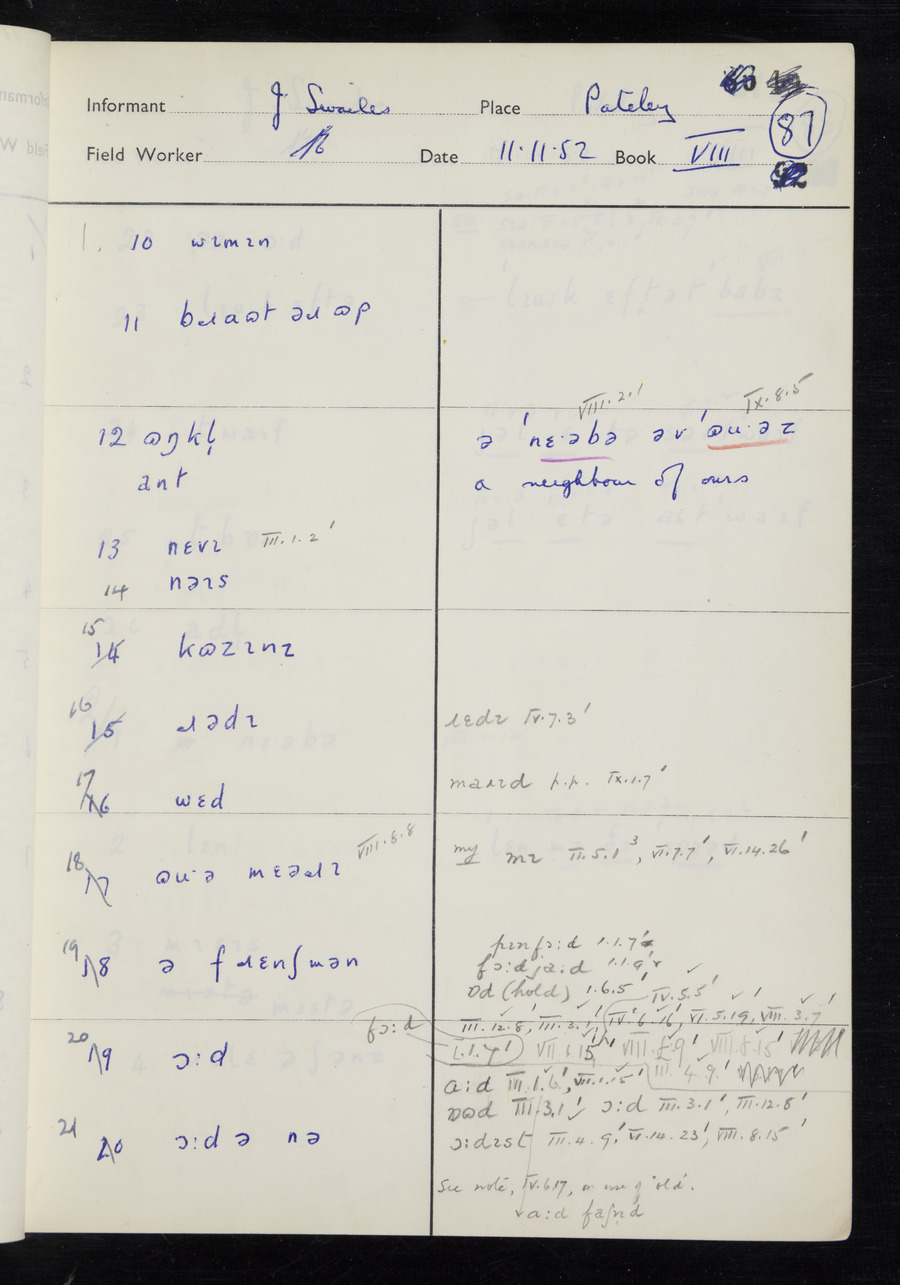 Informant J. Swailes Place Pateley 87
Field Worker Date 11.11.52 Book VIII
1. 10 wɪmɪn
11 bɹaɷt əɹ ɷp
VIII.2.1' IX.8.5
12 ɷŋkḷ ə 'nɛ·əbə əv 'ɷu·əz
ant a neighbour of ours
13 nɛvɪ III.1.2'
14 nəɪs
15 14 kɷzɪnz
16 15 ɹədɪ ɹɛdɪ IV.7.3'
17 16 wɛd maɪɪd p.p. IX.1.7'
VIII.8.8
18 17 ɷu·ə mɛəɹɪ my mɪ II.5.1³, VI.7.7', VI.14.26'
19 18 ə fɹɛnʃmən pɪnfɔ:d I.1.7'
fɔ:djɑ:d I.1.9'
ɒd (hold) I.6.5' IV.5.5'
fɔ:d III.12.8, III.3.1', IV.6.16', VI.5.19, VIII.3.7'
20 19 ɔ:d I.1.7' VII.1.15' VIII.8.15'
a:d III.1.6', VII.1.15' III.4.9'
ɒɷd III.3.1' ɔ:d III.3.1', III.12.8'
21 20 ɔ:d ə nə ɔ:dɪst III.4.9' VI.14.23', VIII.8.15'
See note, IV.6.17, on use of 'old'.
a:d